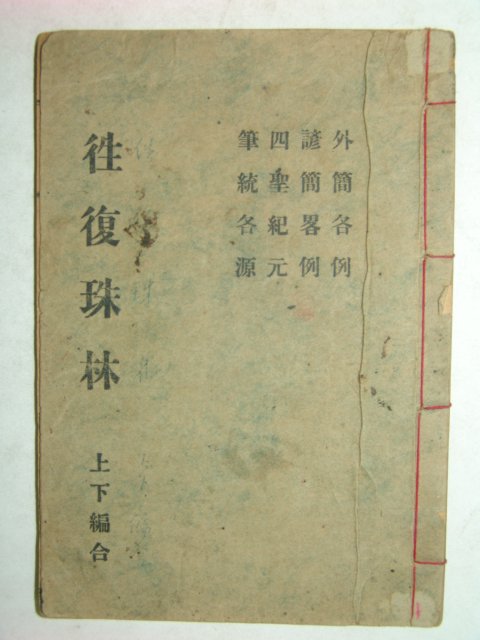 外簡各例
諺簡畧例
四聖紀元
筆統各源
徃復珠林 上下編合